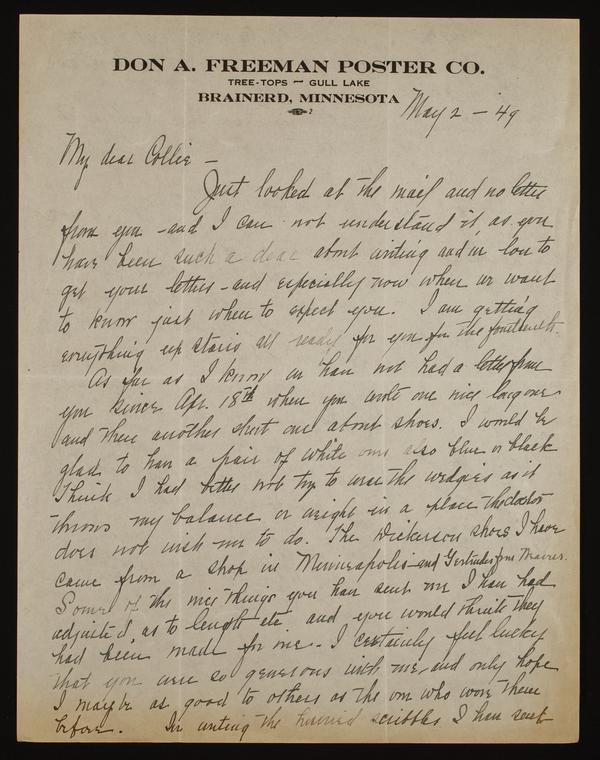 DON A. FREEMAN POSTER CO.
TREE-TOPS — GULL LAKE
BRAINERD, MINNESOTA
May 2 - '49
My dear Collie -
Just looked at the mail and no letter
from you - and I can not understand it, as you
have been such a dear about writing and we love to
get your letters - and especially now when we want
to know just when to expect you. I am getting
everything up stairs all ready for you for the fourteenth.
As far as I know we have not had a letter from
you since Apr. 18th when you wrote one nice long one
and then another short one about shoes. I would be
glad to have a pair of white ones also blue or black
Think I had better not try to wear the wedgies as it
throws my balance or weight in a place the doctor
does not wish me to do. The Dickerson shoes I have
came from a shop in Minneapolis - and Gertrudes from
Some of the nice things you have sent me I have had
adjusted, as to length etc and you would think they
had been made for me - I certainly feel lucky
that you were so generous with me, and only hope
I may be as good to others as the one who wore them
before. In writing the hurried scribbles I have sent